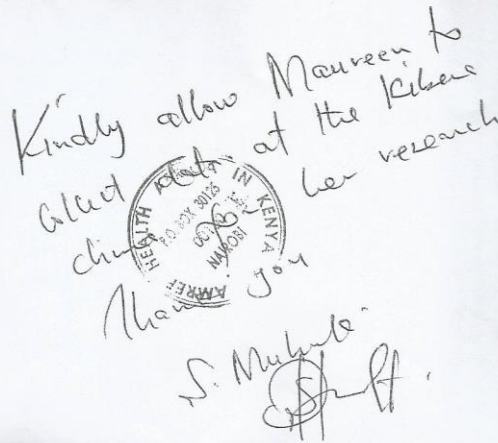 Kindly allow Maureen to
collect data at the Kibera
her research
Thank you
S.
AMREF HEALTH AFRICA IN KENYA
P.O. BOX 30125
OCT
NAIROBI